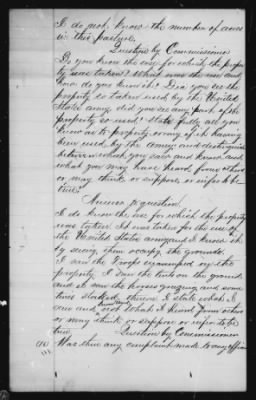 I do not know the number of acres
in this pasture.
Question by Commissioner
Do you know the use for which the proper-
ty was taken? What was the use and
how do you know it? Did you see the
property so taken used by the United
States army, did you see any part of the
property so used? State fully all you
know as to property or any of it having
been used by the Army and distinguish
between what you saw and know and
what you may have heard from others
or may think or suppose or infer to be
true?
Answer to question
I do know the use for which the property
was taken. It was taken for the use of
the United States army and I know it
by seeing them occupy the grounds.
I saw the Troops encamped on the
property I saw the tents on the ground
and I saw the horses grazing and some
times
I state what I
saw and know and not what I heard from others
or may think or suppose or infer to be
true. Question by Commissioner
Was there any complaint made to any officer